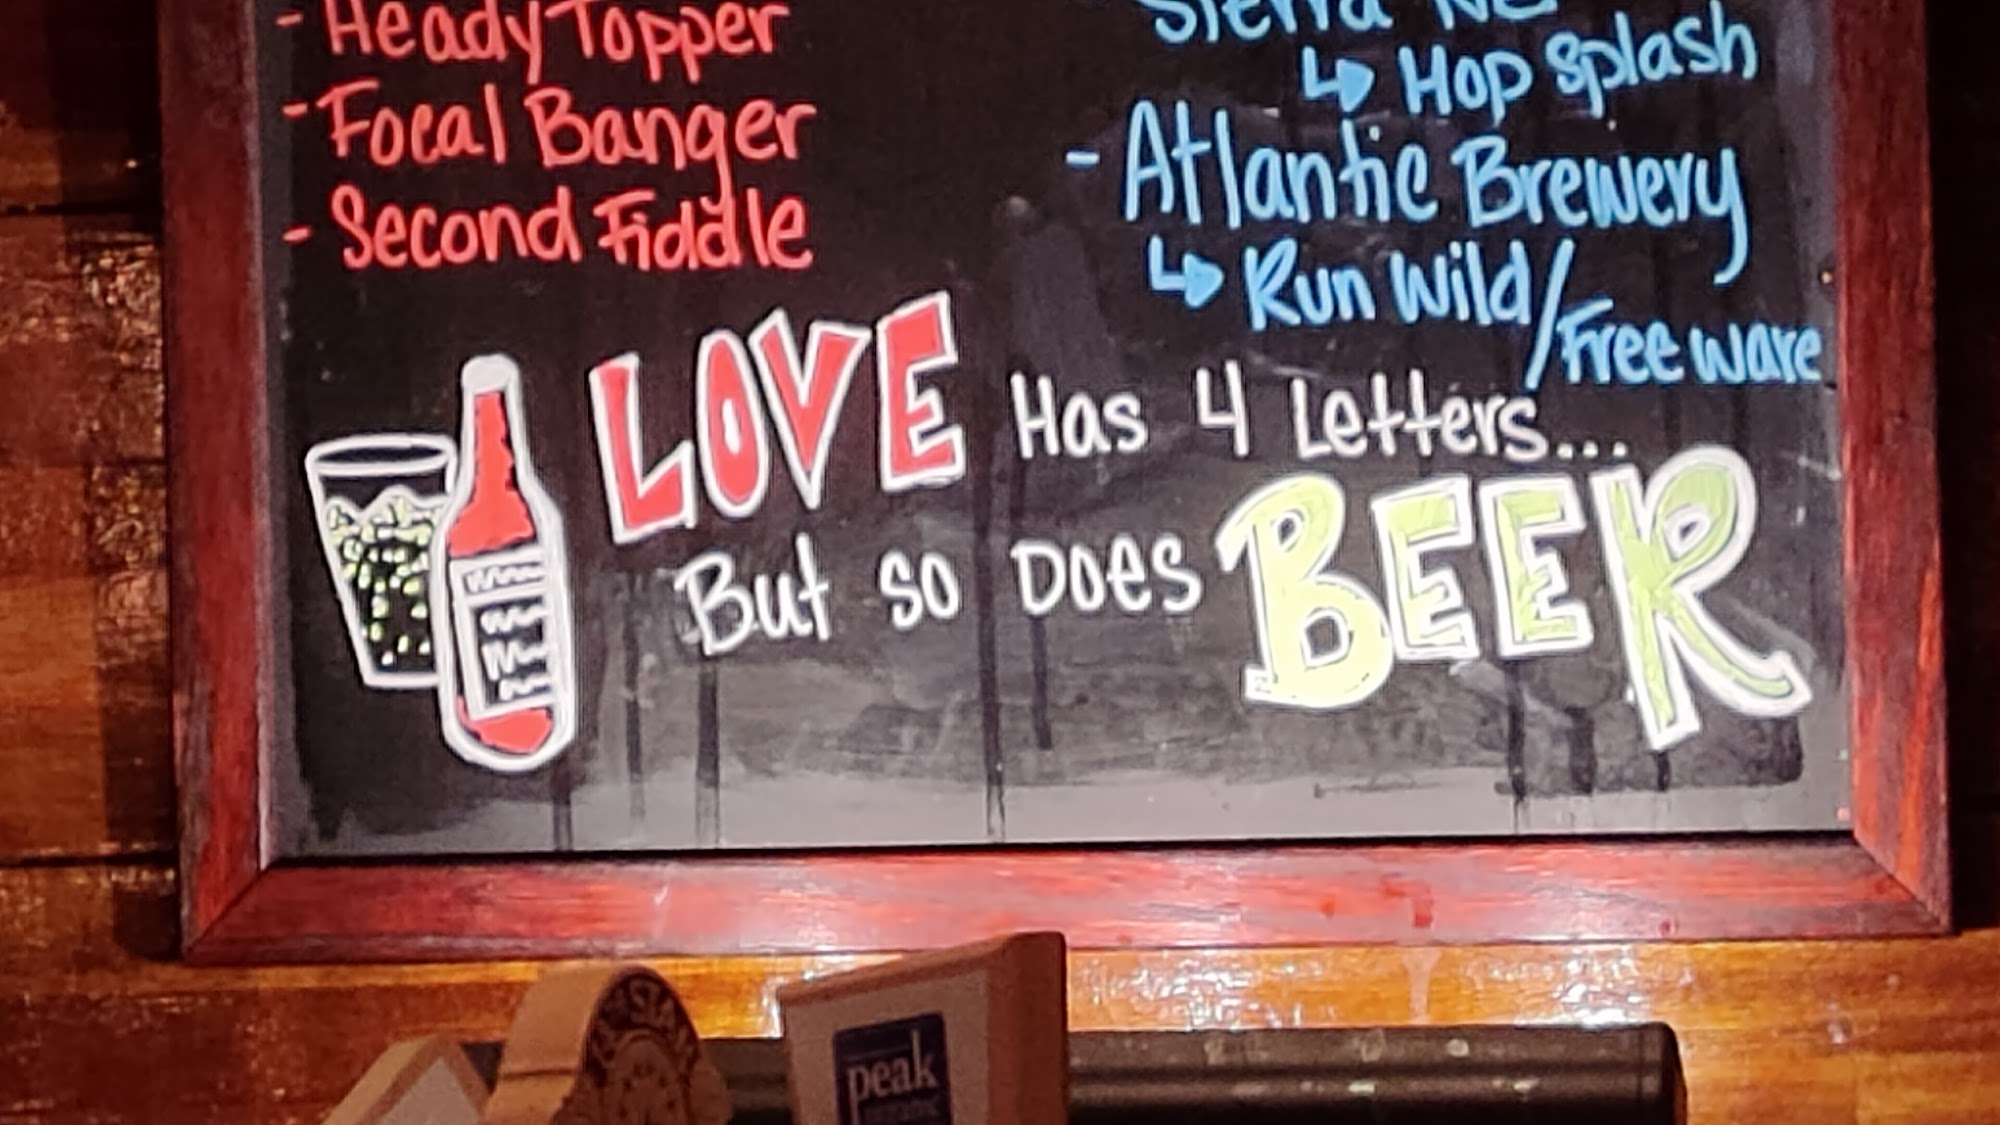 - Heady Topper
- Focal Banger
- Second Fiddle
Sierra
↳ Hop Splash
- Atlantic Brewery
↳ Run Wild/Free ware
LOVE Has 4 Letters...
But so Does BEER
peak